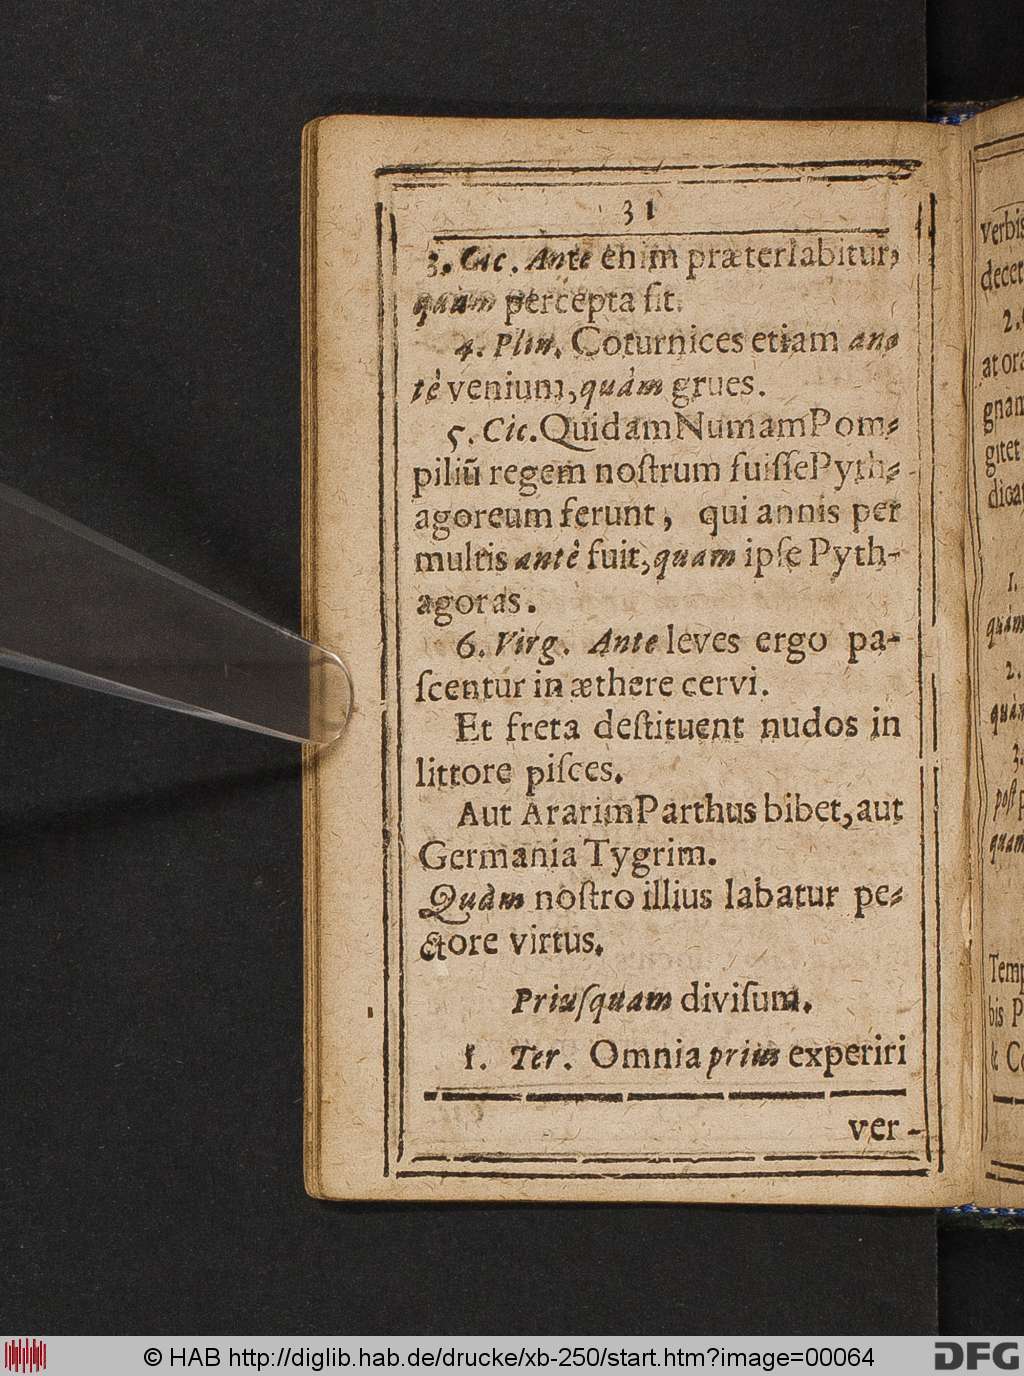 31
3. Cic. Ante enim præterlabitur,
quam percepta ſit.
4. Plin. Coturnices etiam an⸗
tè veniunt, quàm grues.
5. Cic. Quidam Numam Pom⸗
piliū regem noſtrum fuiſſe Pyth⸗
agoreum ferunt, qui annis per
multis antè fuit, quam ipſe Pyth-
agoras.
6. Virg. Ante leves ergo pa-
ſcentur in æthere cervi.
Et freta deſtituent nudos in
littore piſces.
Aut Ararim Parthus bibet, aut
Germania Tygrim.
Quàm noſtro illius labatur pe⸗
ctore virtus.
Priuſquam diviſum.
1. Ter. Omnia prius experiri
ver-
verbis
decet
2.
at ora
gnam
gitet
dicat
1.
quàm
2.
quàm
3.
poſt p
quam
Temp
bis P
& Co
© HAB http://diglib.hab.de/drucke/xb-250/start.htm?image=00064
DFG